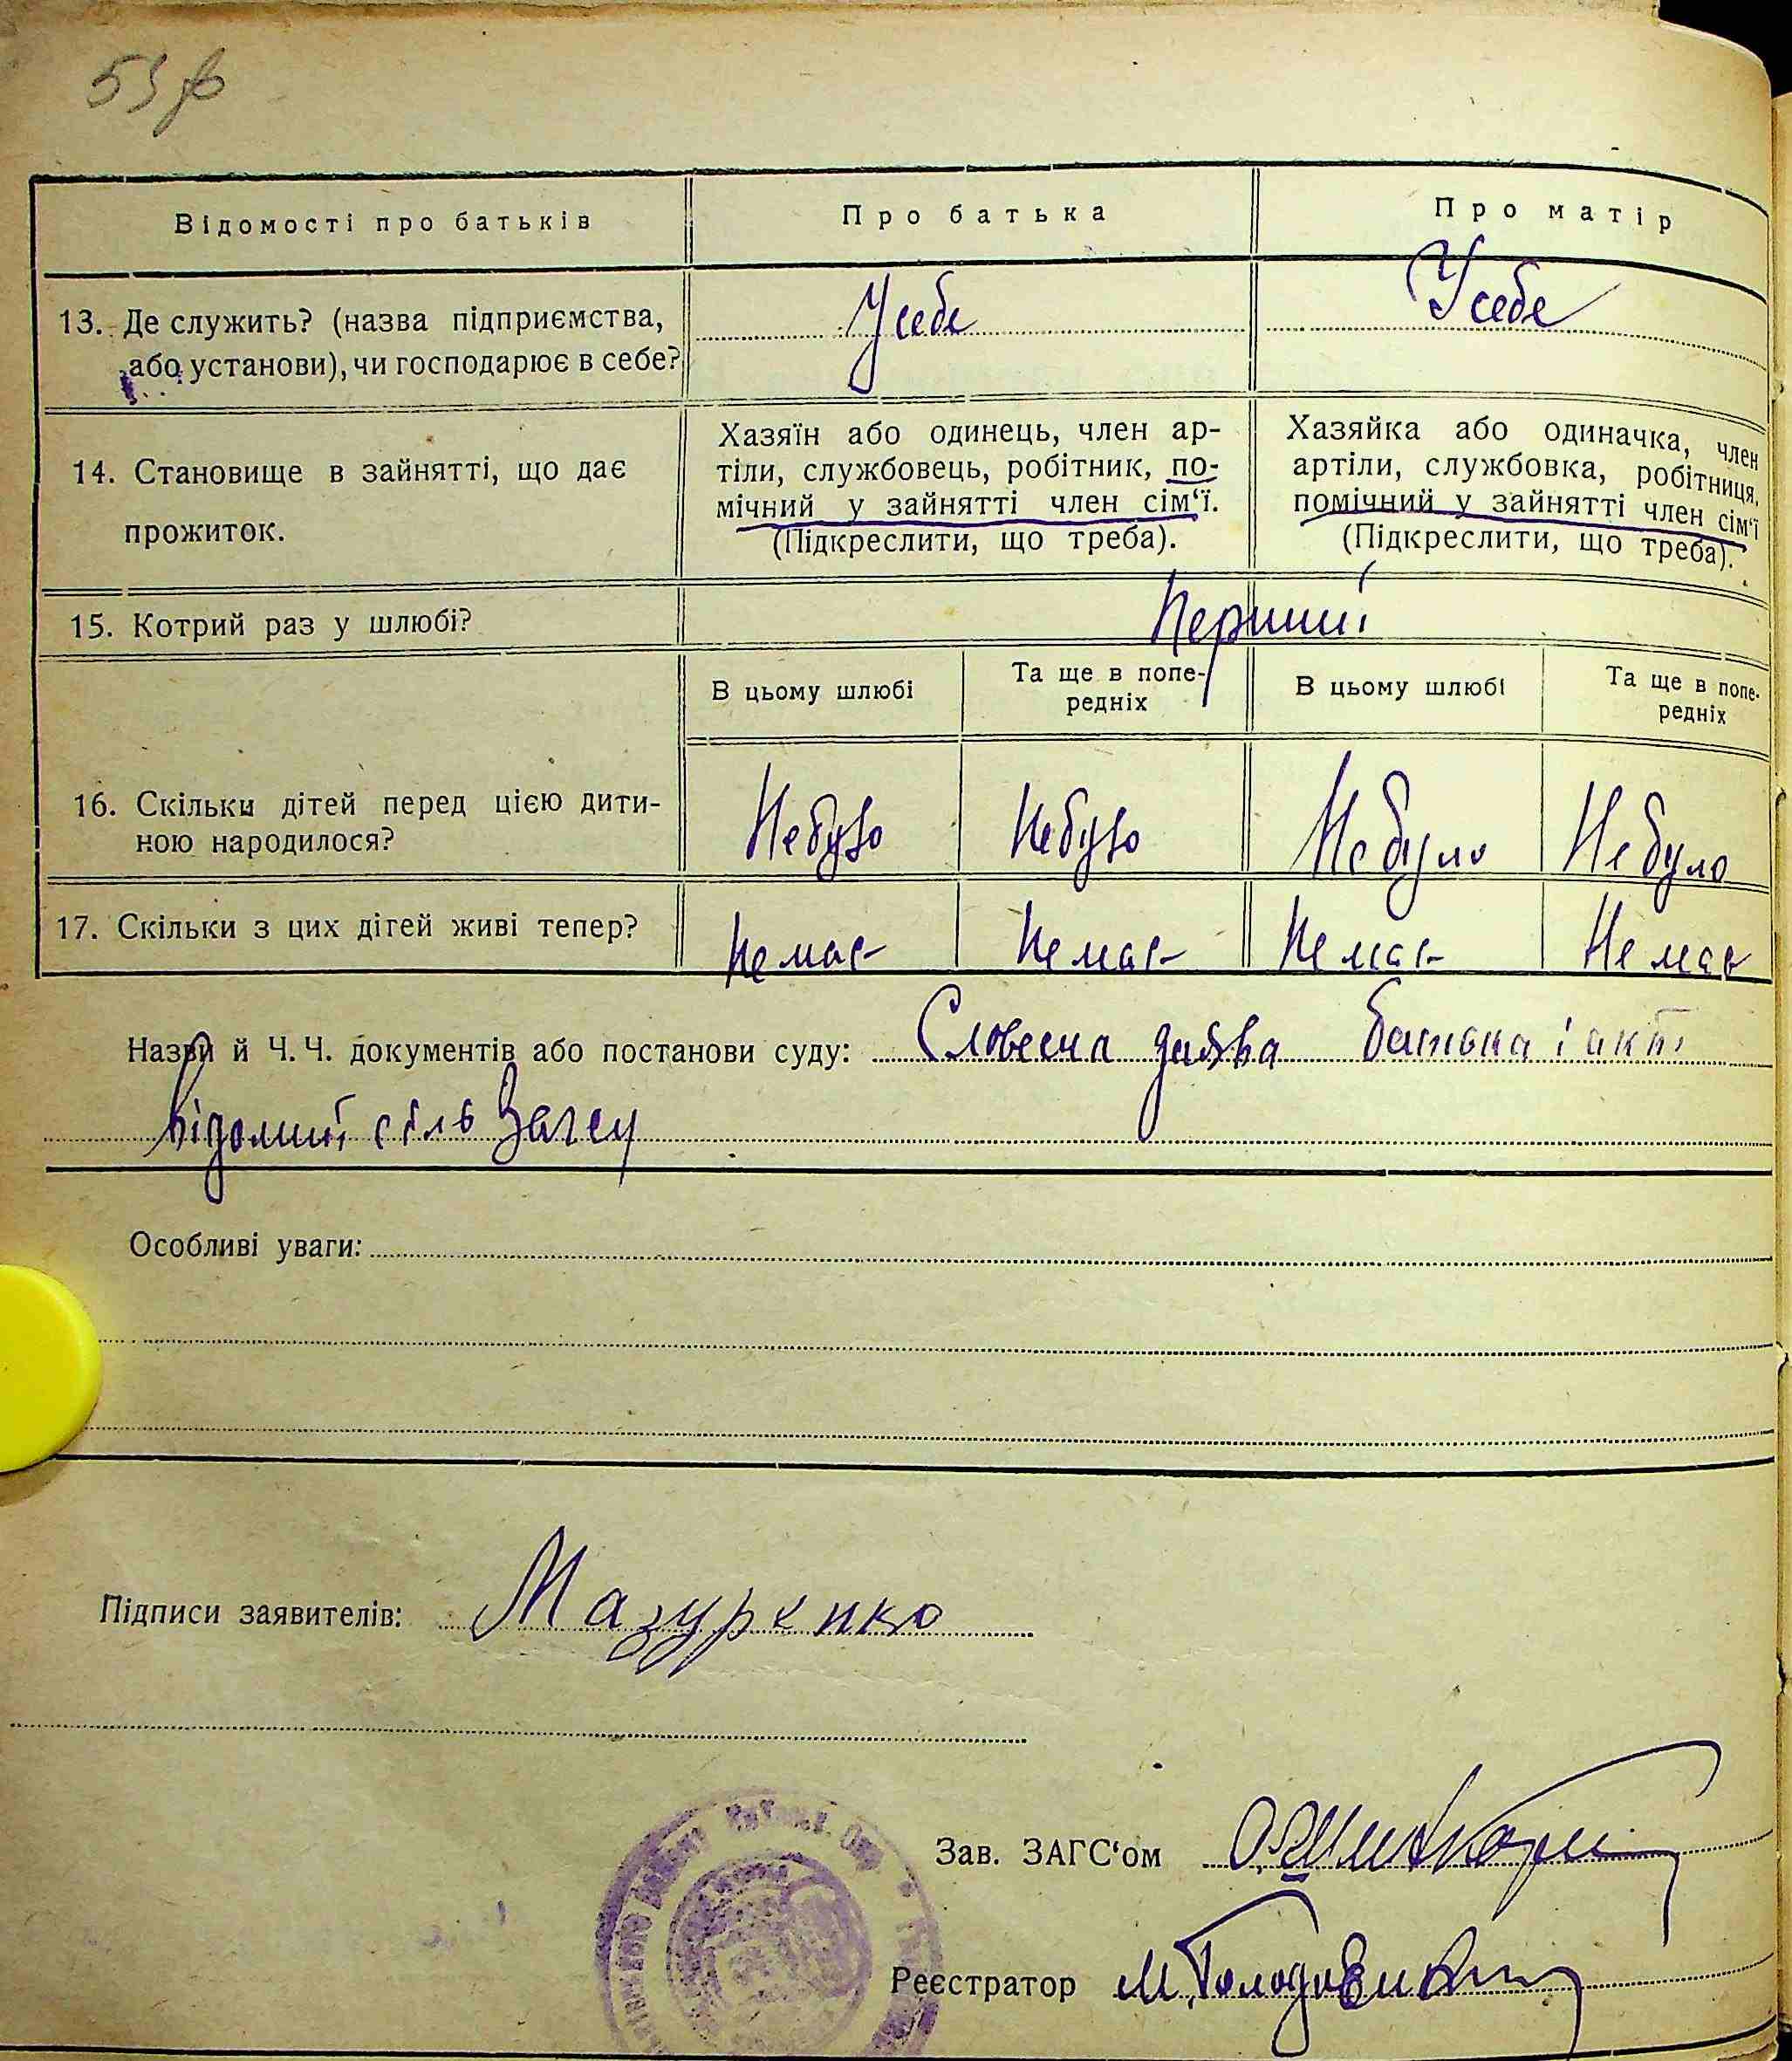 Відомості про батьків
Про батька
Про матір
13. Де служить? (назва підприємства,
або установи), чи господарює в себе?
У себе
У себе
14. Становище в зайнятті, що дає
прожиток.
Хазяїн або одинець, член ар-
тіли, службовець, робітник, по-
мічний у зайнятті член сім‘ї.
(Підкреслити, що треба).
Хазяйка або одиначка, член
артіли, службовка, робітниця,
помічний у зайнятті член сім‘ї
(Підкреслити, що треба).
15. Котрий раз у шлюбі?
Перший
В цьому шлюбі
Та ще в попе-
редніх
В цьому шлюбі
Та ще в попе-
редніх
16. Скільки дітей перед цією дити-
ною народилося?
Небуло
Небуло
Не було
Не було
17. Скільки з цих дітей живі тепер?
Немає
Немає
Немає
Немає
Назви й Ч. Ч. документів або постанови суду: Словесна заява батька і акт
відомий сіль Загсу
Особливі уваги:
Підписи заявителів: Мазуренко
Зав. ЗАГС‘ом
Реєстратор